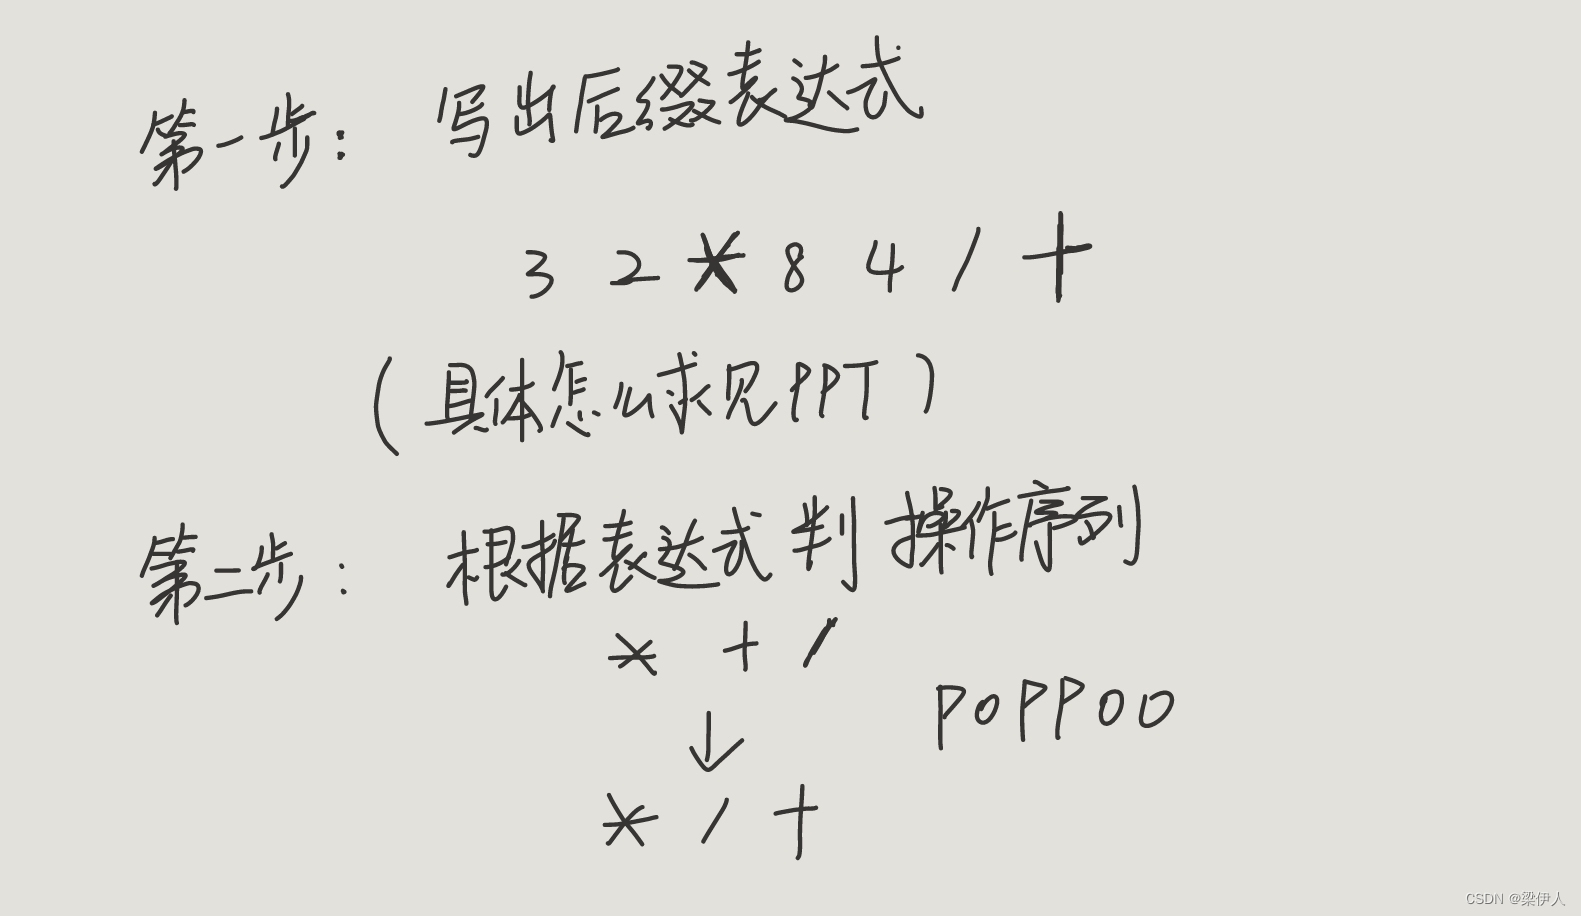 第一步： 写出后缀表达式
3 2 * 8 4 / +
（具体怎么求见PPT）
第二步： 根据表达式判操作序列
* + /
POPPOO
↓
* / +
CSDN @梁伊人